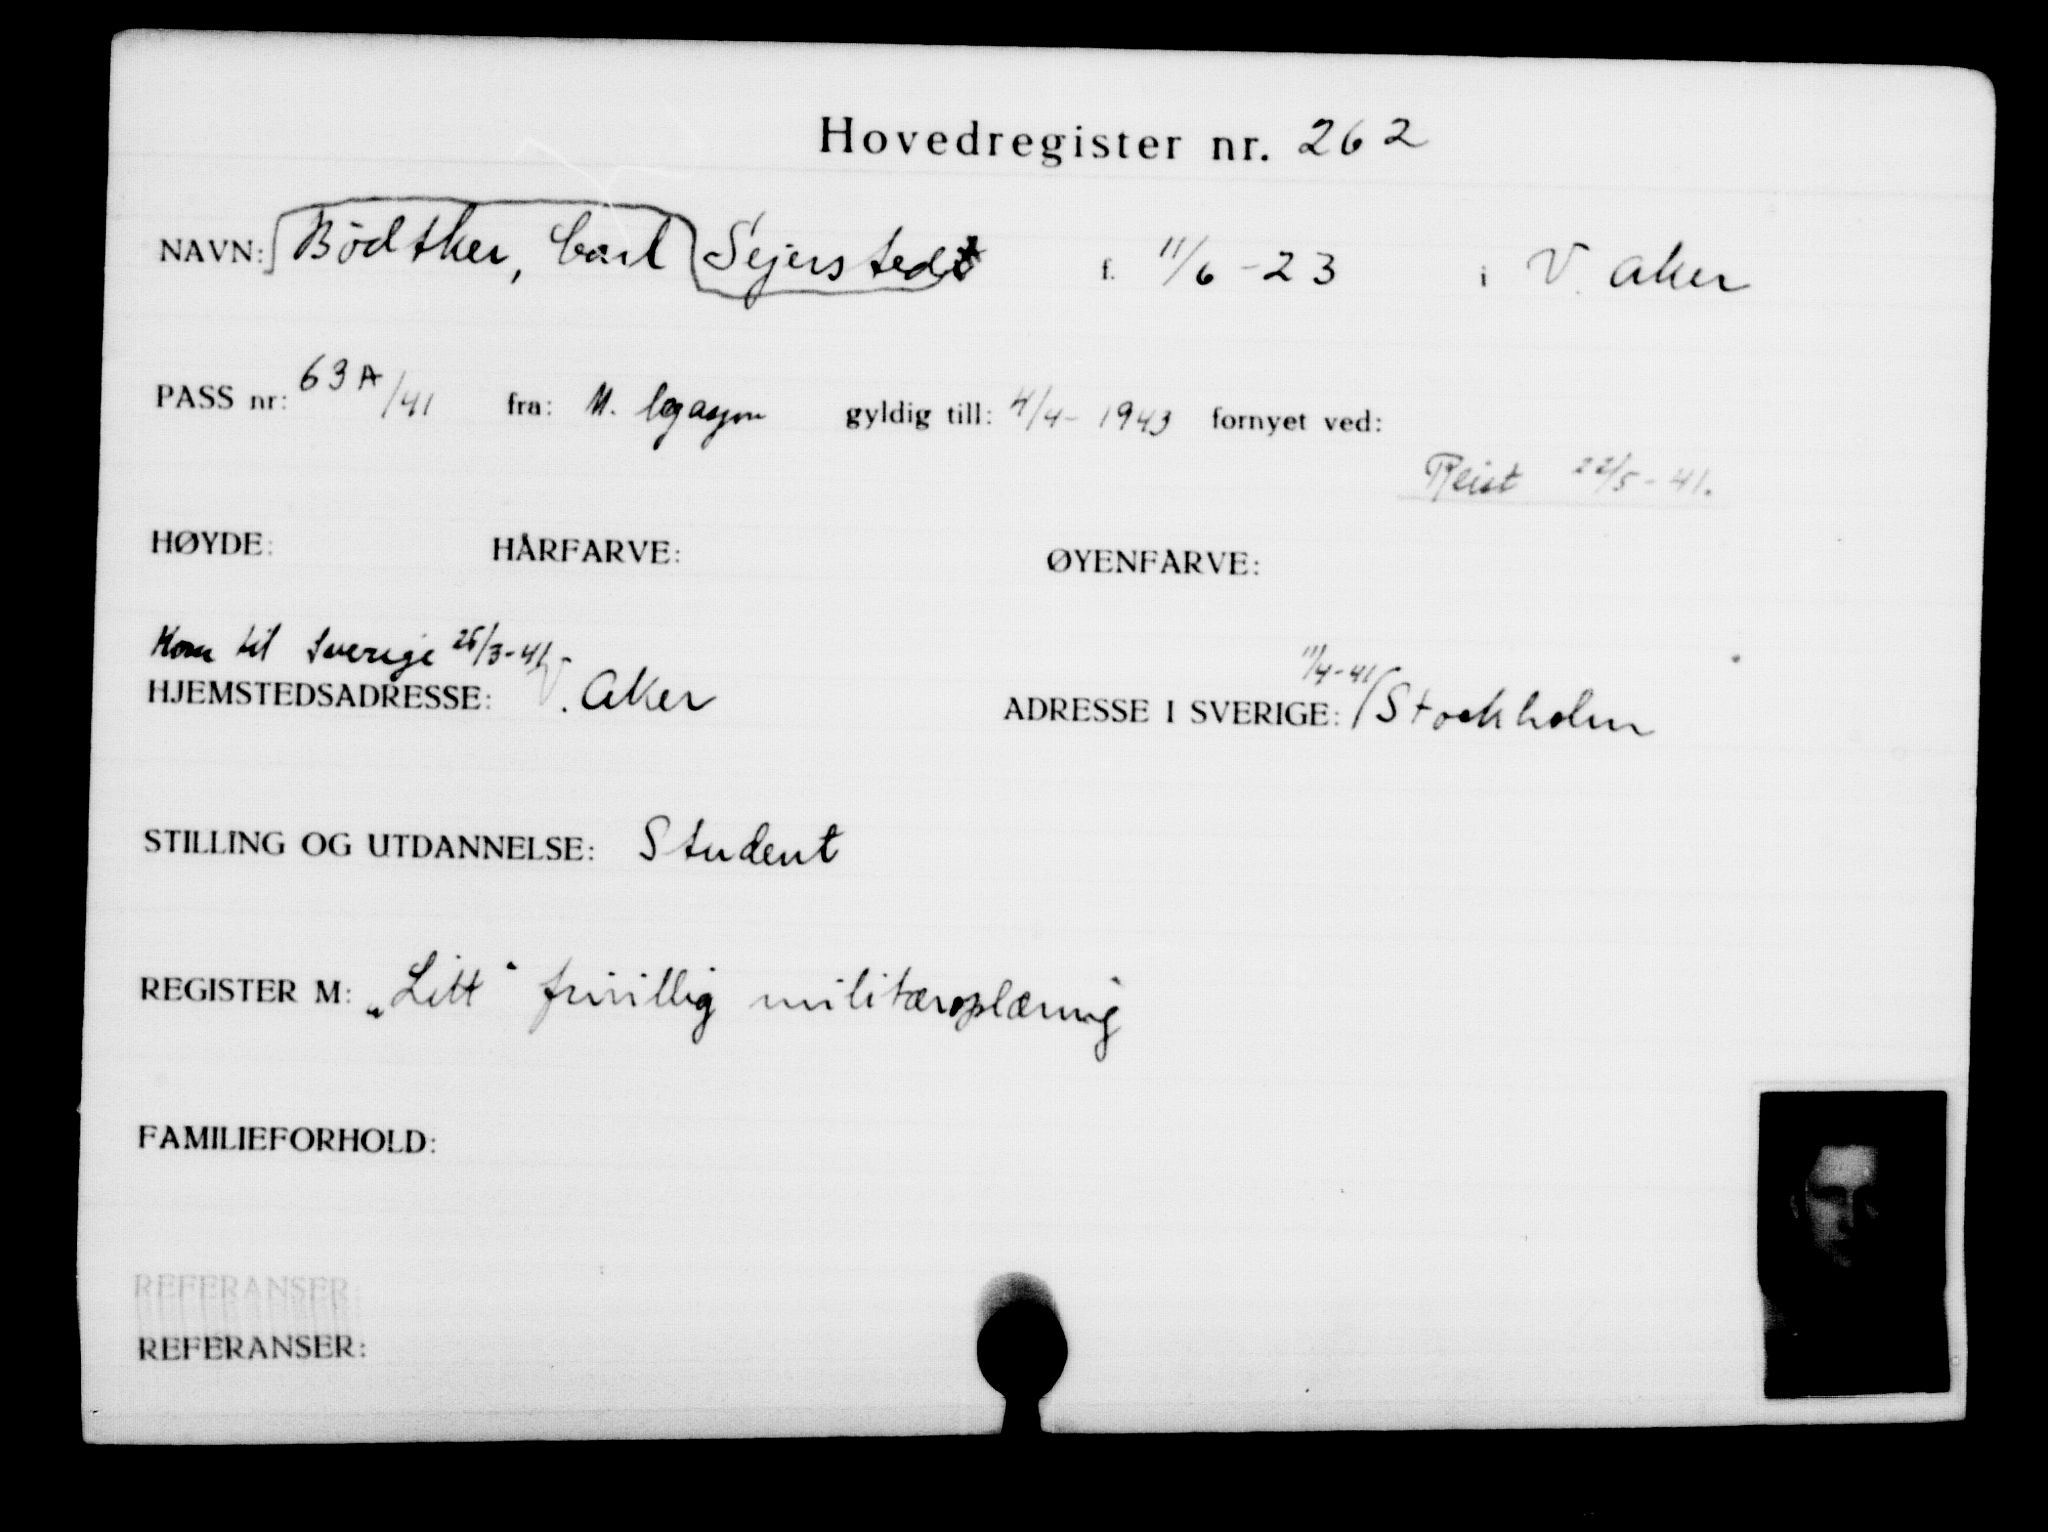 Hovedregister nr. 262
NAVN: Bödtker, Carl Sejerstedt f. 11/6 - 23 i V. Aker
PASS nr: 63A/41 fra: N. legasjon gyldig till: 4/4 - 1943 fornyet ved:
Reist 22/5 - 41.
HØYDE: HÅRFARVE: ØYENFARVE:
Kom til Sverige 25/3 - 41 11/4 - 41
HJEMSTEDSADRESSE: V. Aker ADRESSE I SVERIGE: Stockholm
STILLING OG UTDANNELSE: Student
REGISTER M: „Litt“ frivillig militæroplæring
FAMILIEFORHOLD:
REFERANSER:
REFERANSER: